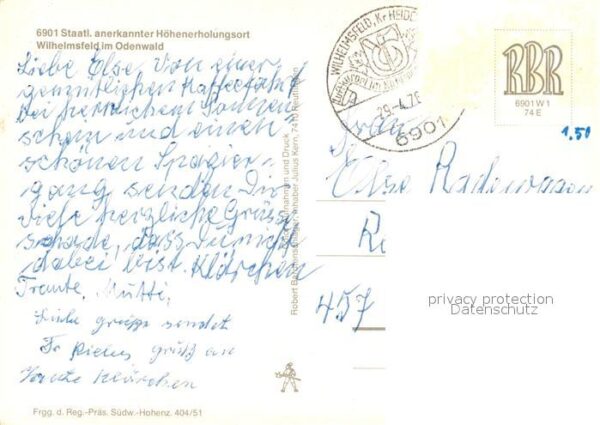 6901 Staatl. anerkannter Höhenerholungsort
Wilhelmsfeld im Odenwald
Liebe Else, von einer
gemütlichen Kaffeefahrt
bei herrlichem Sonnen-
schein und einen
schönen Spazier-
gang senden Dir
viele herzliche Grüsse
schade, dass Du nicht
dabei bist. Klärchen
Traute, Mutti,
Liebe grüße sendet
viele gruß an
Tante Klärchen
Frgg. d. Reg.-Präs. Südw.-Hohenz. 404/51
Aufnahmen und Druck
Inhaber Julius Kern, 7410
WILHELMSFELD, Kr HEIDE
29.-4.76
6901
RBR
6901 W 1
74 E
1.50
Frau
Else
457
privacy protection
Datenschutz